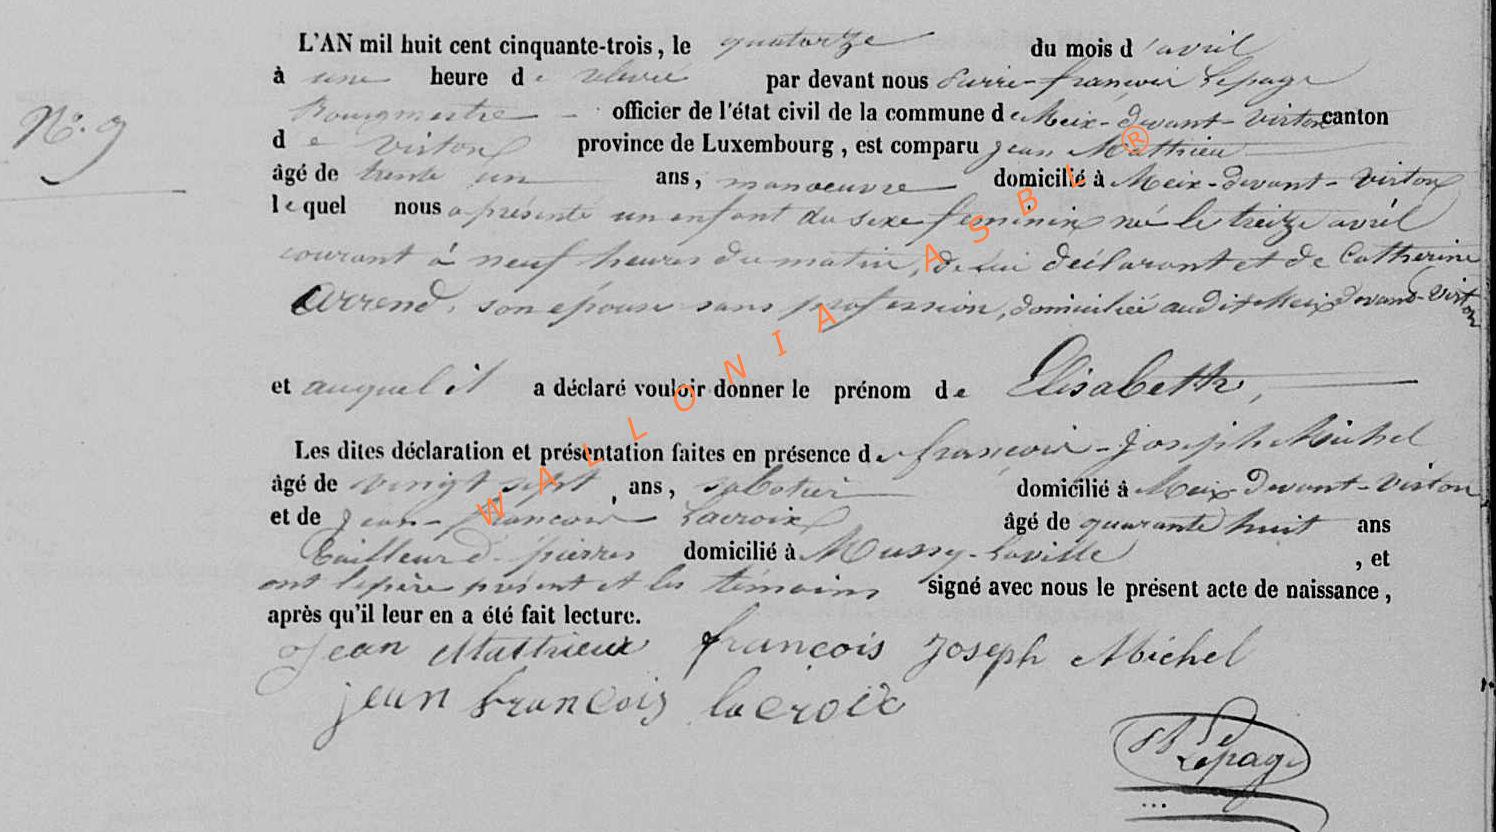 L'AN mil huit cent cinquante-trois, le quatorze du mois d'avril
à une heure de relevée par devant nous Pierre-françois Lepage
N°. 9
Bourgmestre - officier de l'état civil de la commune de Meix-devant-Virton canton
de Virton province de Luxembourg, est comparu Jean Mathieu
âgé de trente un ans, manoeuvre domicilié à Meix-devant-Virton
lequel nous a présenté un enfant du sexe feminin né le treize avril
courant à neuf heures du matin, de lui déclarant et de Catherine
Arrend, son épouse sans profession, domiciliée audit Meix-devant-Virton
et auquel il a déclaré vouloir donner le prénom de Elisabeth,
Les dites déclaration et présentation faites en présence de françois-Joseph Michel
âgé de vingt sept ans, sabotier domicilié à Meix-Devant-Virton
et de Jean-françois Lacroix âgé de quarante huit ans
tailleur de pierres domicilié à Mussy-Laville, et
ont le père présent et les témoins signé avec nous le présent acte de naissance,
après qu'il leur en a été fait lecture.
Jean Mathieu françois Joseph Michel
jean francois lacroix
Lepage
WALLONIA ASBL ®